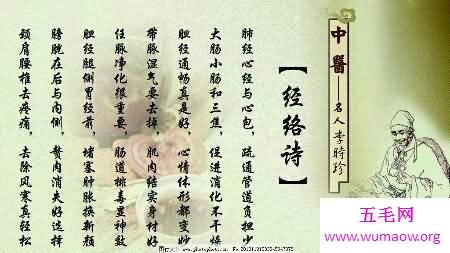 中醫——名人李時珍
【经络诗】
肺经心经与心包，疏通管道负担少
大肠小肠和三焦，促进消化不干燥
胆经通畅真是好，心情体形都变妙
带脉湿气要去掉，肌肉结实身材好
任脉净化很重要，肠道排毒显神效
胆经腿侧胃经前，堵塞肿胀换新颜
膀胱在后与内侧，赘肉消失好选择
颈肩腰椎去疼痛，去除风寒真轻松
五毛网
www.wumaow.org